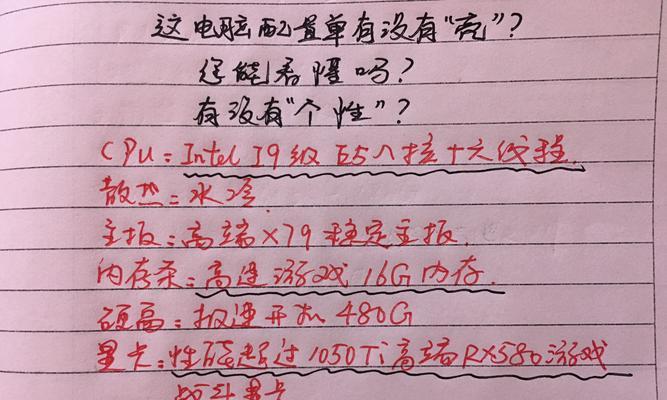 这电脑配置单有没有“壳”?
您能看懂吗?
有没有“个性”?
CPU:Intel I9级 E5八核十六线程.
散热:水冷
主板:高端X79稳定主板.
内存条:高速游戏16G内存.
硬高:极速开机480G
显卡:性能超过1050Ti高端RX580游戏
战斗显卡